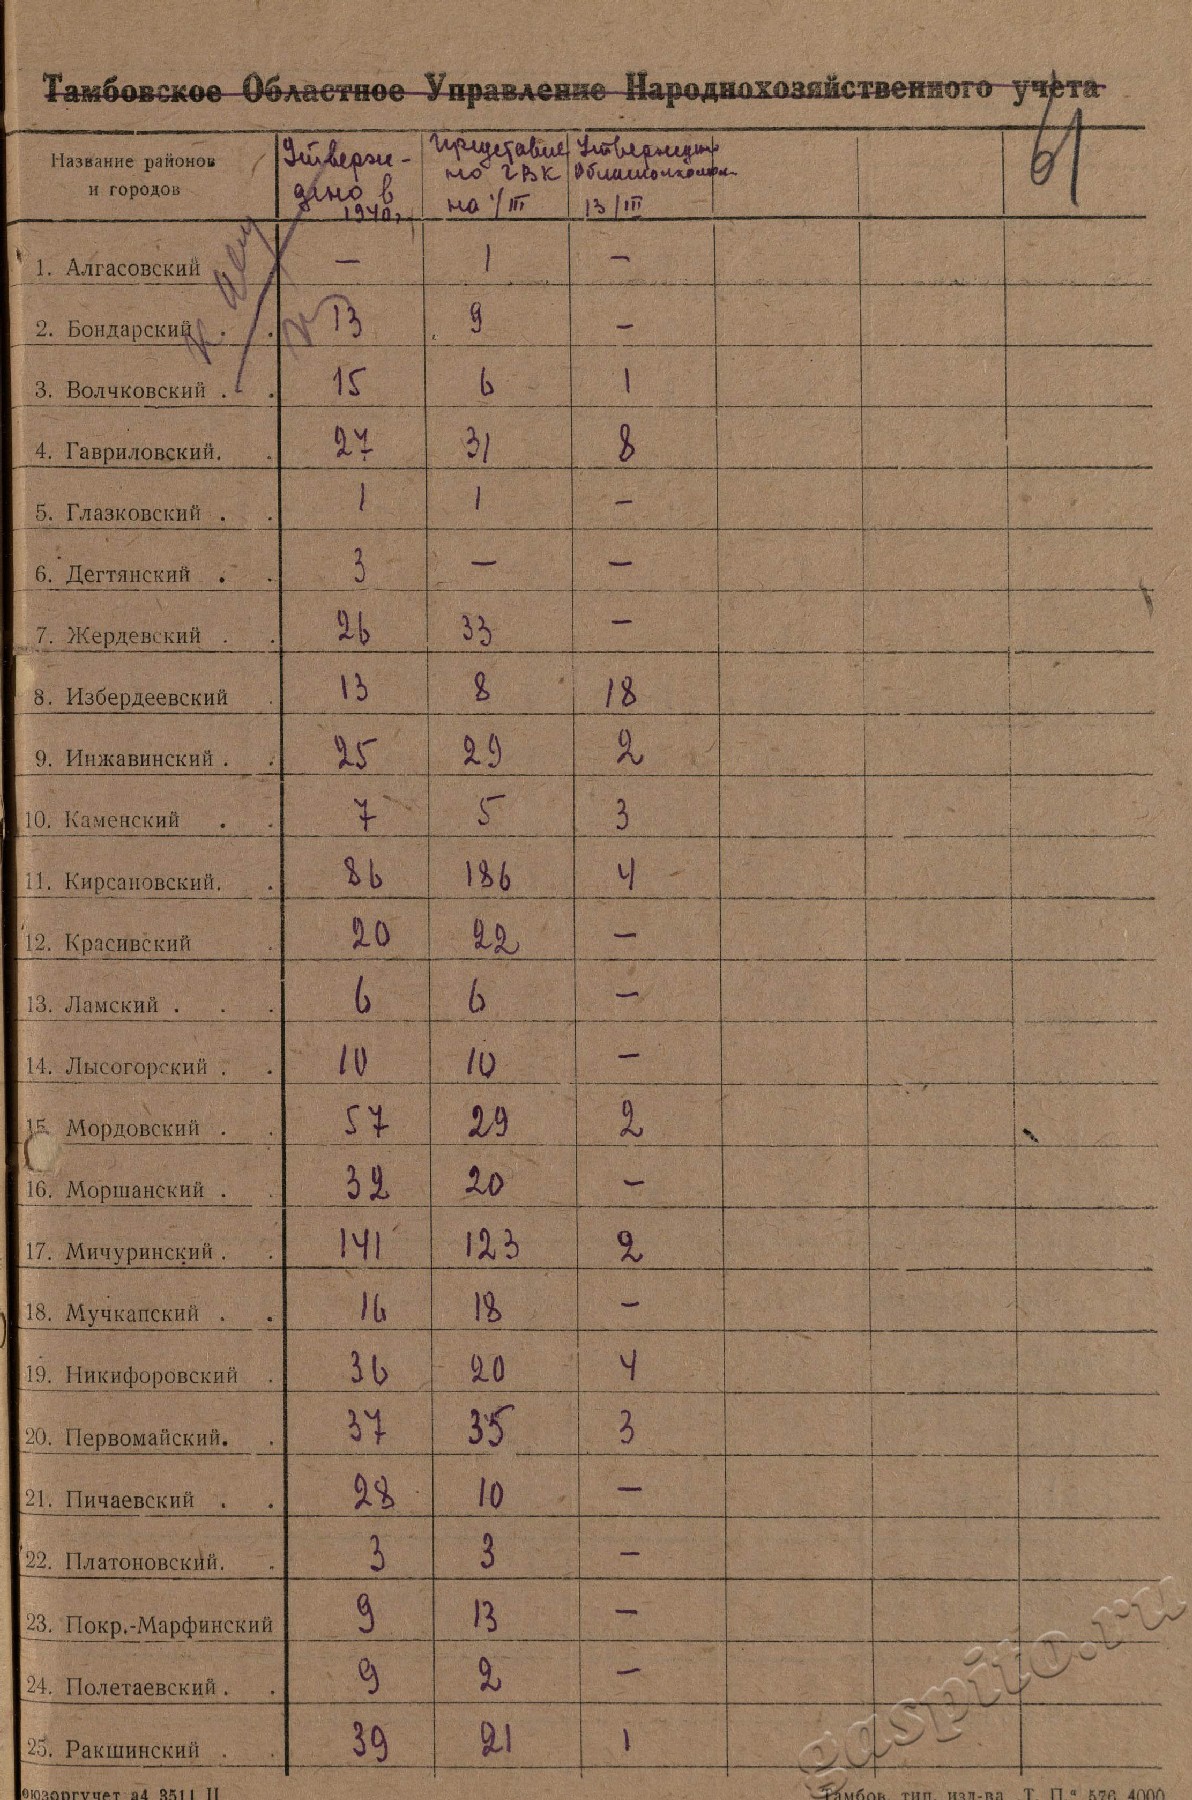 Тамбовское Областное Управление Народнохозяйственного учета
61
Название районов и городов | Утверждено в 1940г. | Представлено ГВК на 1/III | Утверждено Облисполкомом 13/III
1. Алгасовский — 1 —
2. Бондарский . . 13 9 —
3. Волчковский . . 15 6 1
4. Гавриловский. . 27 31 8
5. Глазковский . . 1 1 —
6. Дегтянский . . 3 — —
7. Жердевский . . 26 33 —
8. Избердеевский . 13 8 18
9. Инжавинский . . 25 29 2
10. Каменский . . 7 5 3
11. Кирсановский. . 86 186 4
12. Красивский . 20 22 —
13. Ламский . . . 6 6 —
14. Лысогорский . . 10 10 —
15. Мордовский . . 57 29 2
16. Моршанский . . 32 20 —
17. Мичуринский . . 141 123 2
18. Мучкапский . . 16 18 —
19. Никифоровский . 36 20 4
20. Первомайский. . 37 35 3
21. Пичаевский . . 28 10 —
22. Платоновский. . 3 3 —
23. Покр.-Марфинский 9 13 —
24. Полетаевский . . 9 2 —
25. Ракшинский . . 39 21 1
gaspito.ru
а4 3511 II
Тамбов. тип. изд-ва 576 4000